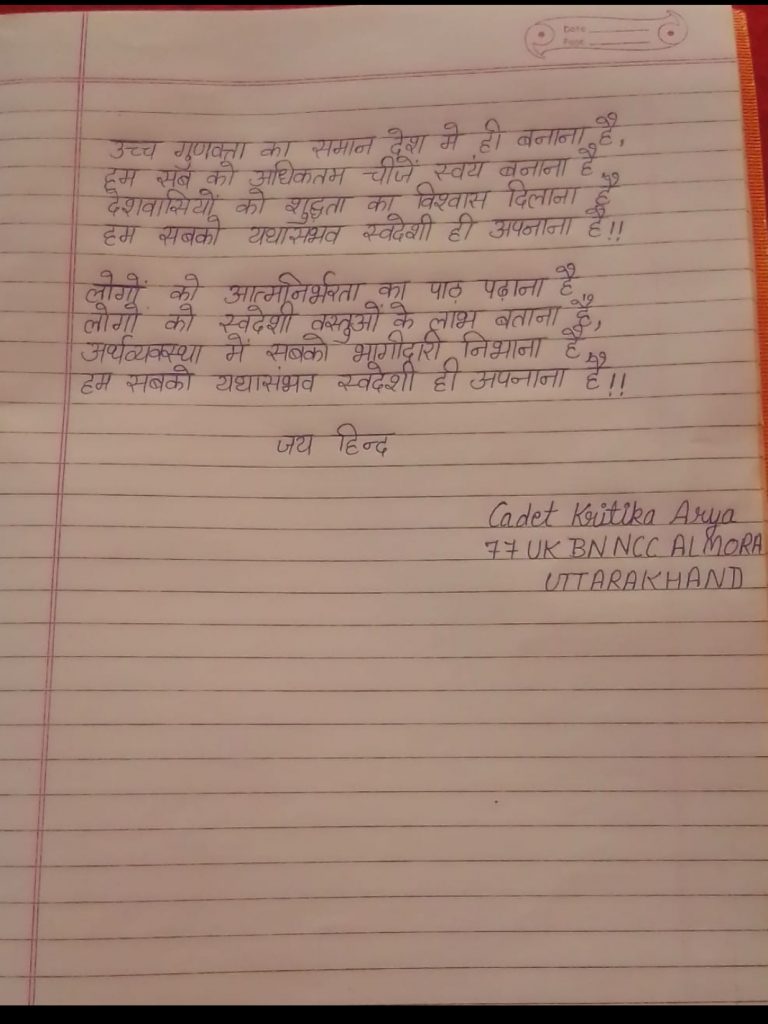 Date
Page
उच्च गुणवत्ता का समान देश मे ही बनाना है,
हम सब को अधिकतम चीजें स्वयं बनाना है,
देशवासियों को शुद्धता का विश्वास दिलाना है
हम सबको यथासंभव स्वदेशी ही अपनाना है!!
लोगों को आत्मनिर्भरता का पाठ पढ़ाना है
लोगों को स्वदेशी वस्तुओं के लाभ बताना है,
अर्थव्यवस्था में सबको भागीदारी निभाना है,
हम सबको यथासंभव स्वदेशी ही अपनाना है!!
जय हिन्द
Cadet Kritika Arya
77 UK BN NCC ALMORA
UTTARAKHAND